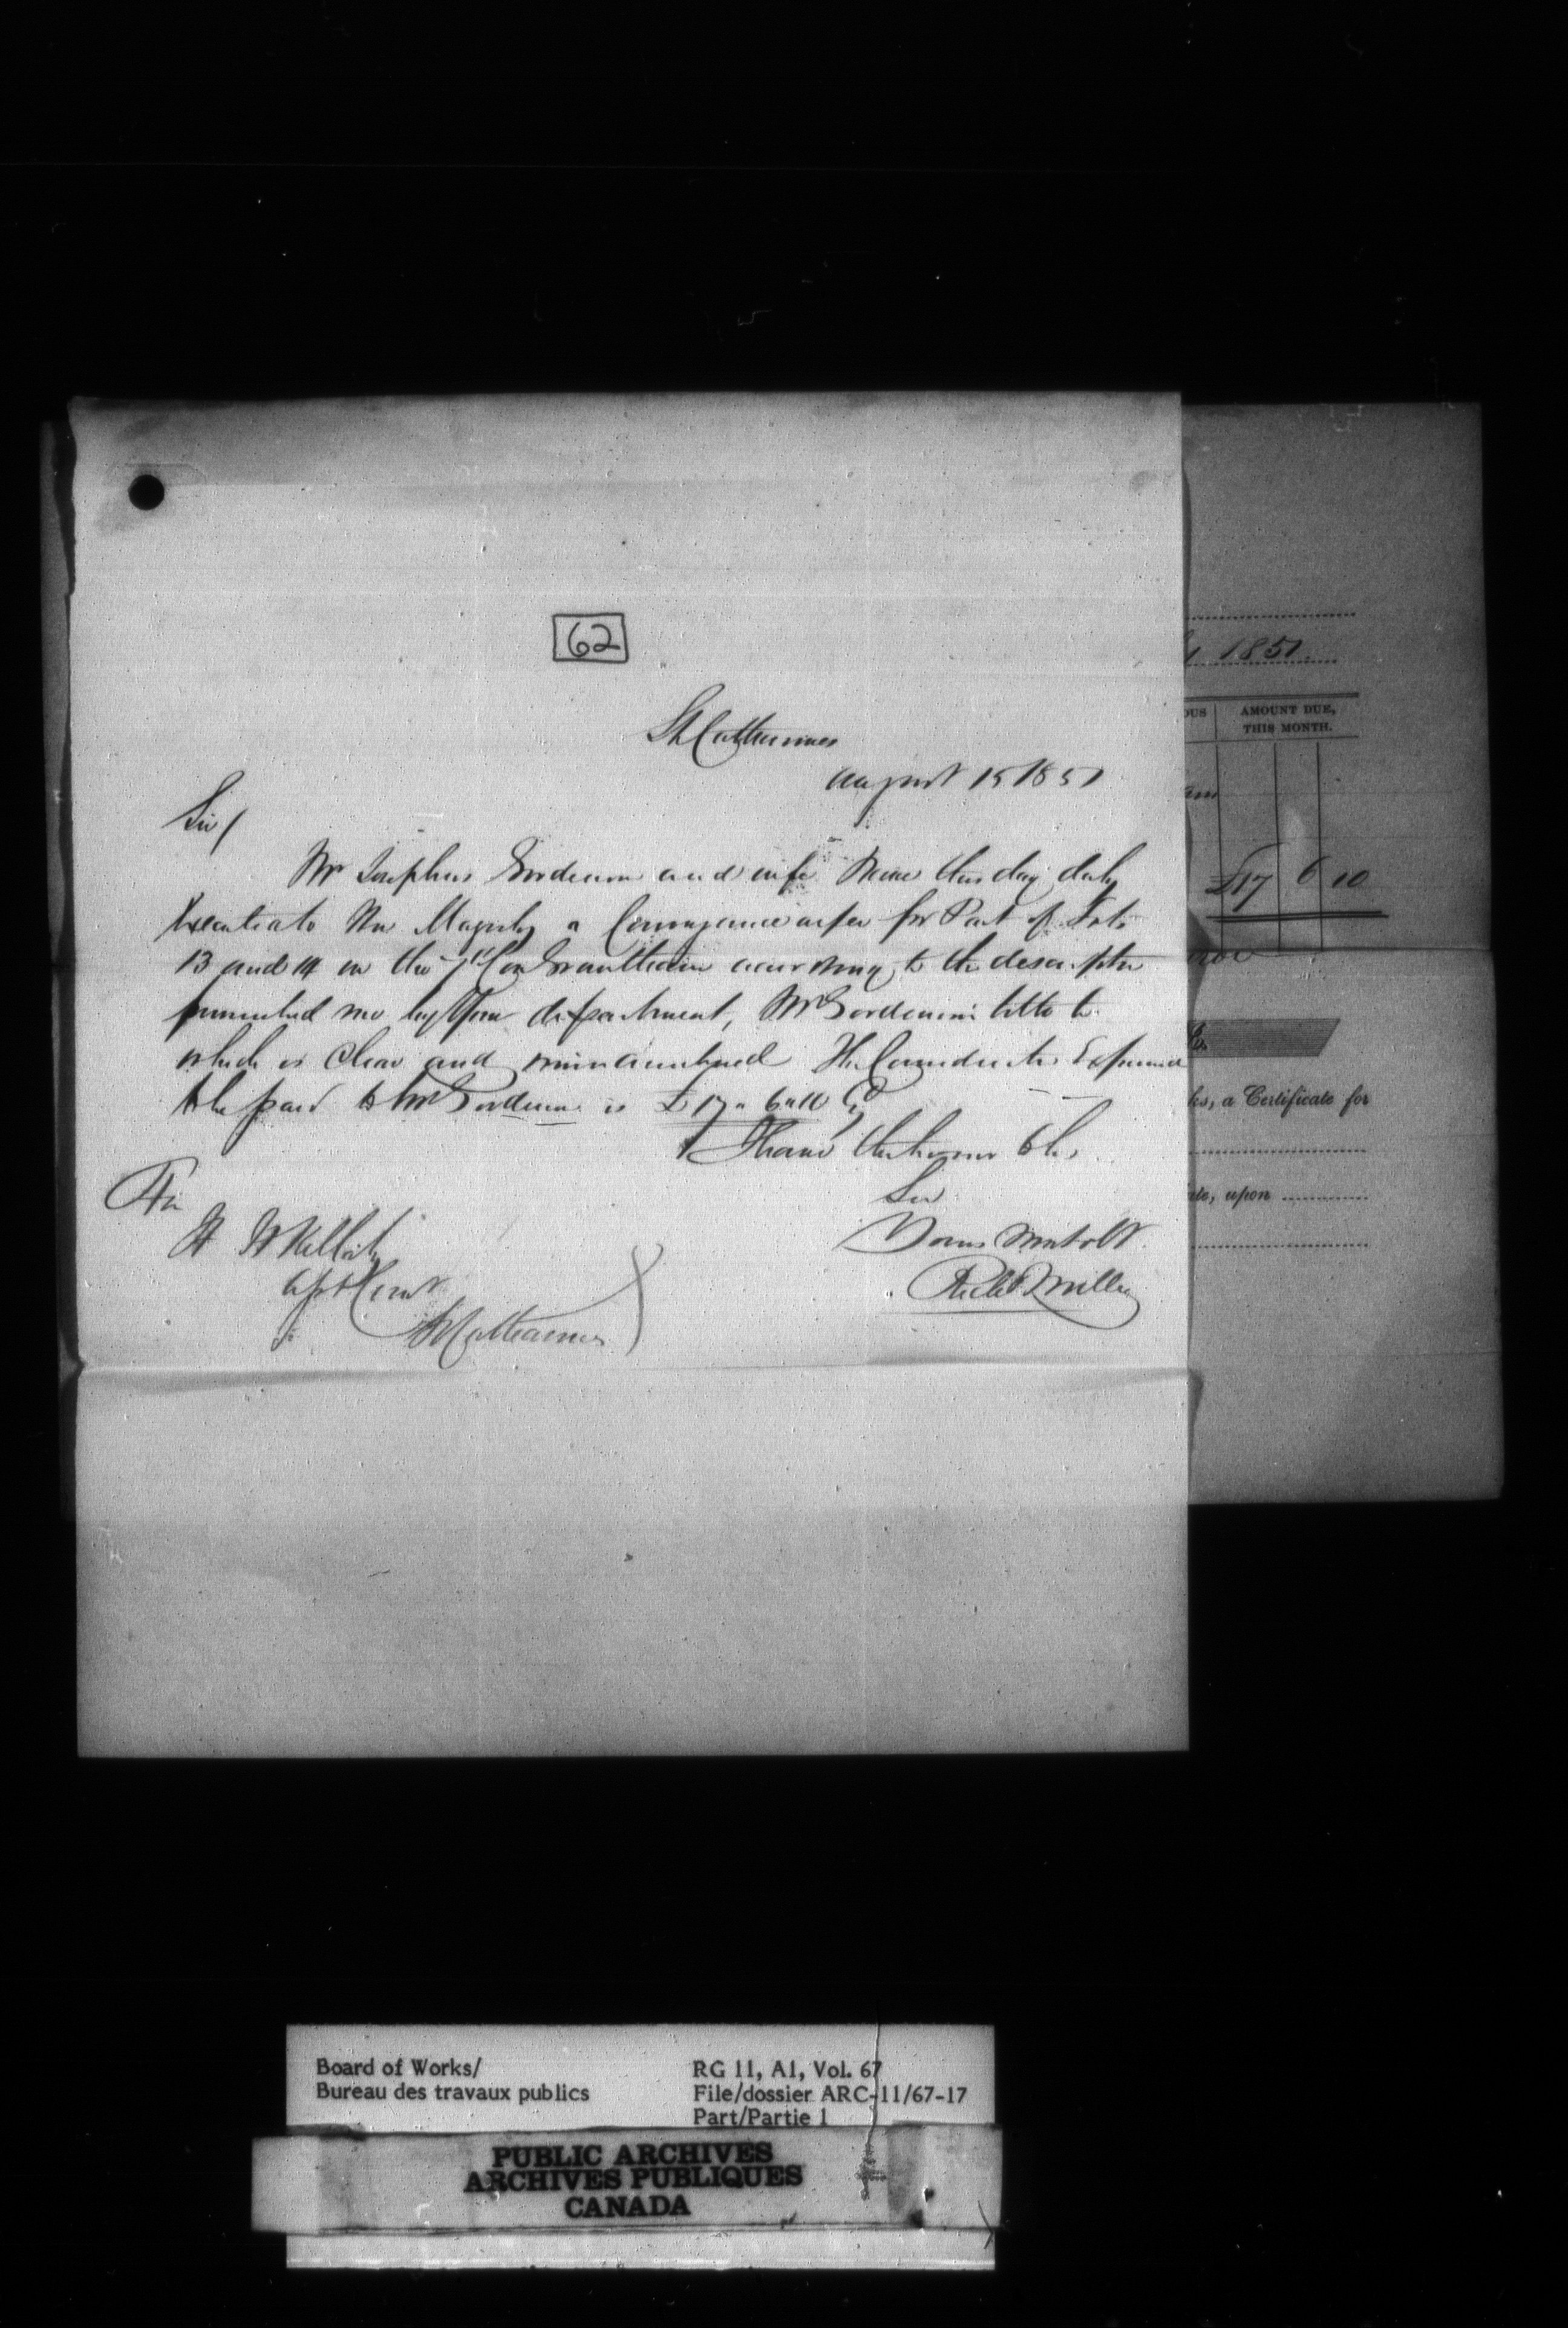 62
St Catharines
August 15 1851
Sir/
Mr Josephus Gordenier and wife have this day duly
Executed to Her Majesty a Conveyance in fee for Part of Lots
13 and 14 in the 7th Con Grantham according to the description
furnished me by Your department, Mr Gordenier's title to
which is Clear and unincumbered The Consideration Expressed
to be paid to Mr Gordenier is £17 " 6 " 10 Cy
I have the honor to be
Sir
Yours
Richd Miller
To
H H Killaly
St Catharines
1851
OUS
AMOUNT DUE,
THIS MONTH.
£17 6 10
ks, a Certificate for
ate, upon
Board of Works/
Bureau des travaux publics
RG 11, A1, Vol. 67
File/dossier ARC-11/67-17
Part/Partie 1
PUBLIC ARCHIVES
ARCHIVES PUBLIQUES
CANADA